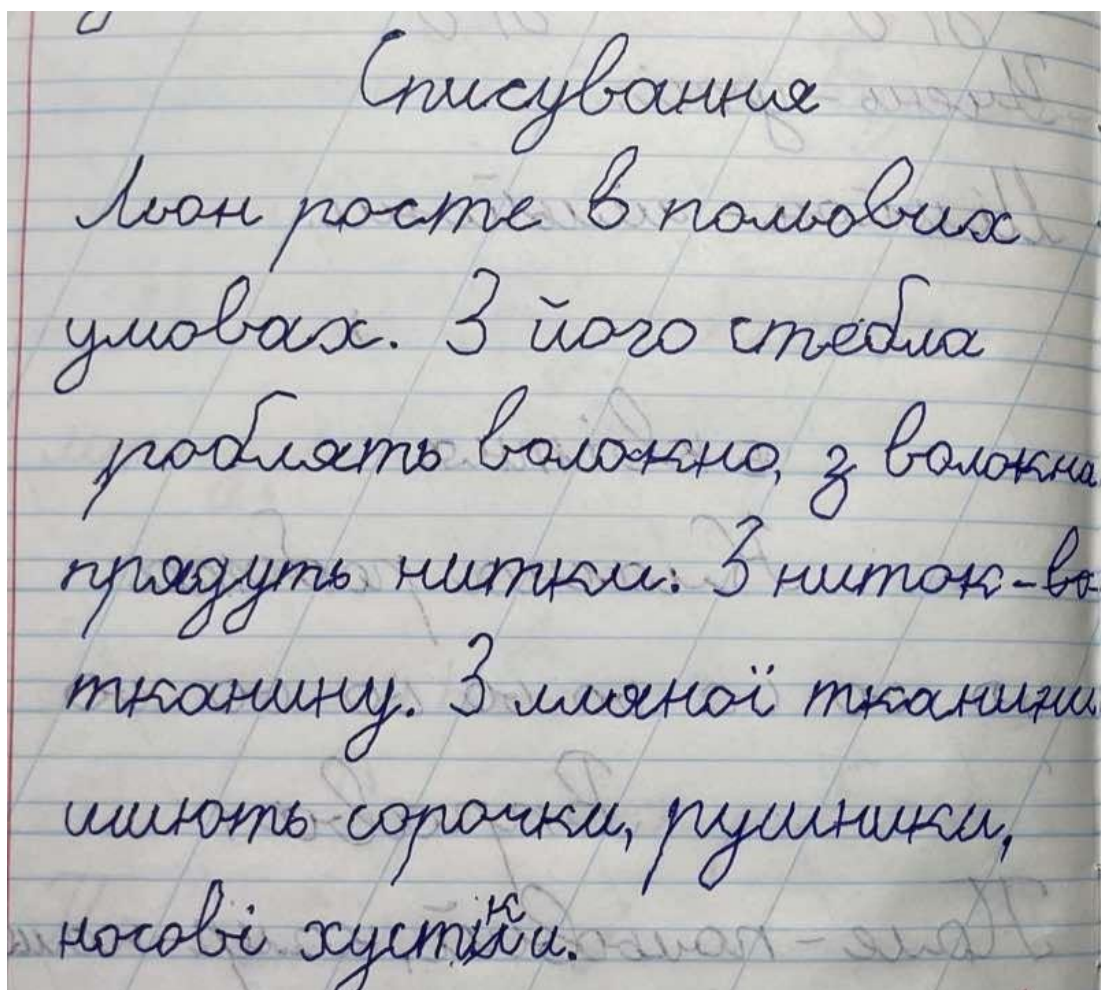 Списування
Льон росте в польових
умовах. З його стебла
роблять волокно, з волокна
прядуть нитки. З ниток-
тканину. З лляної тканини
шиють сорочки, рушники,
носові хустки.